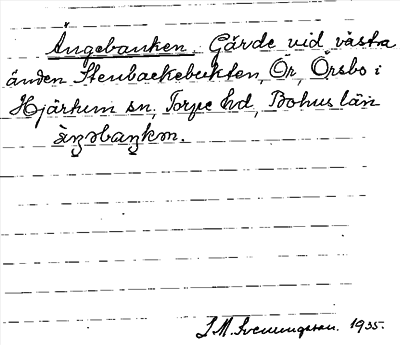 Ängebanken, Gärde vid västra
änden Stenbackebukten, Ör, Örsbo i
Hjärtum sn, Torpe hd, Bohus län
àŋəbaŋkən.
S. M. Svenungsson. 1935.